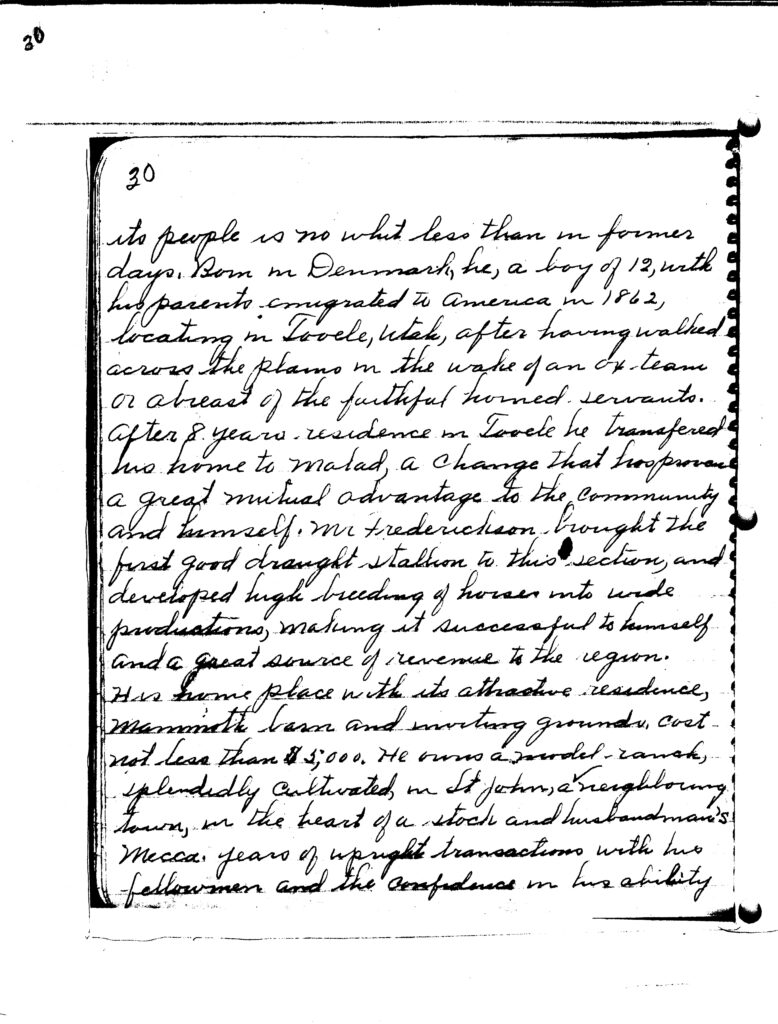 30
30
its people is no whit less than in former
days. Born in Denmark, he, a boy of 12, with
his parents emigrated to America in 1862,
locating in Tooele, Utah, after having walked
across the plains in the wake of an ox-team
or abreast of the faithful horned servants.
After 8 years residence in Tooele he transfered
his home to Malad, a change that has proven
a great mutual advantage to the community
and himself. Mr Frederickson brought the
first good draught stallion to this section, and
developed high breeding of horses into wide
productions, making it successful to himself
and a great source of revenue to the region.
His home place with its attractive residence,
mammoth barn and inviting grounds, cost
not less than $5,000. He owns a model ranch,
splendidly cultivated, in St John, a neighbouring
town, in the heart of a stock and husbandman's
Mecca. years of upright transactions with his
fellowmen and the confidence in his ability